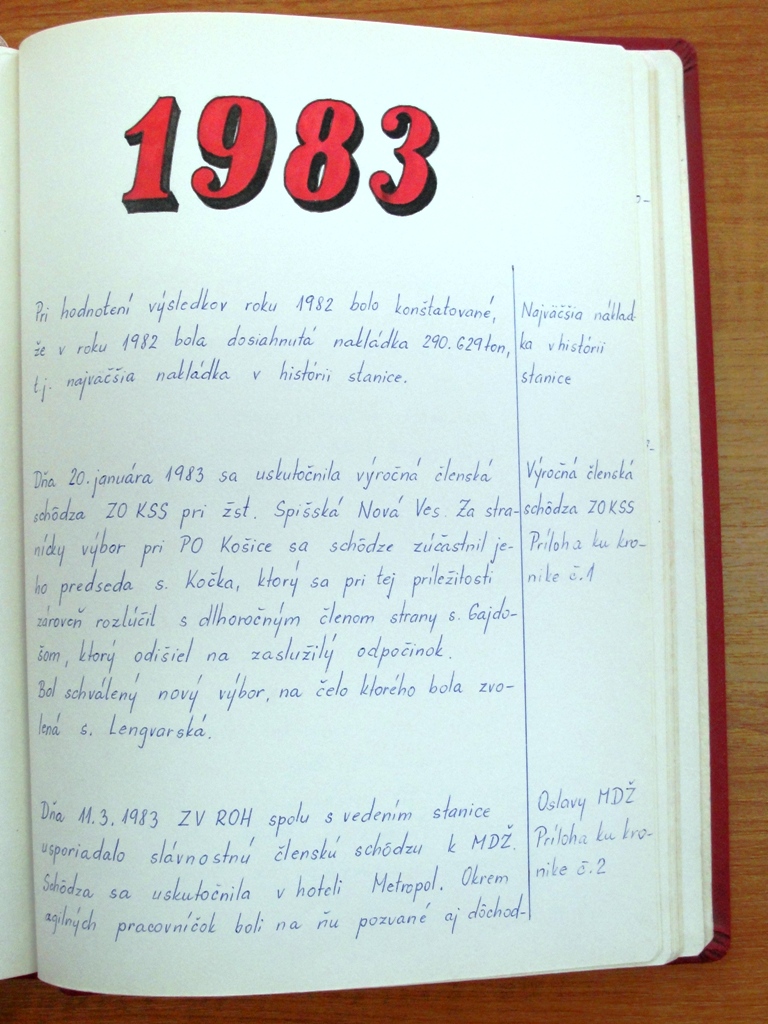 1983
Pri hodnotení výsledkov roku 1982 bolo konštatované,
že v roku 1982 bola dosiahnutá nakládka 290.629 ton,
t.j. najväčšia nakládka v histórii stanice.
Najväčšia náklad-
ka v histórii
stanice
Dňa 20. januára 1983 sa uskutočnila výročná členská
schôdza ZO KSS pri žst. Spišská Nová Ves. Za stra-
nícky výbor pri PO Košice sa schôdze zúčastnil je-
ho predseda s. Kočka, ktorý sa pri tej príležitosti
zároveň rozlúčil s dlhoročným členom strany s. Gajdo-
šom, ktorý odišiel na zaslužilý odpočinok.
Bol schválený nový výbor, na čelo ktorého bola zvo-
lená s. Lengvarská.
Výročná členská
schôdza ZO KSS
Príloha ku kro-
nike č.1
Dňa 11.3.1983 ZV ROH spolu s vedením stanice
usporiadalo slávnostnú členskú schôdzu k MDŽ.
Schôdza sa uskutočnila v hoteli Metropol. Okrem
agilných pracovníčok boli na ňu pozvané aj dôchod-
Oslavy MDŽ
Príloha ku kro-
nike č.2